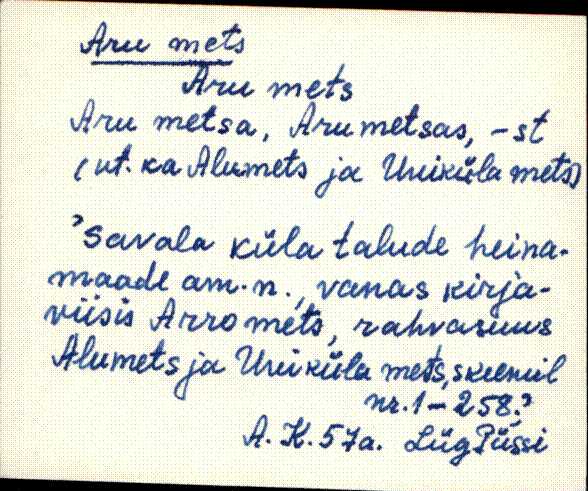 Aru mets
Aru mets
Aru metsa, Arumetsas, -st
(vt. ka Alumets ja Uniküla mets)
"Savala küla talude heina-
maade am.n., vanas kirja-
viisis Arromets, rahvasuus
Alumets ja Uniküla mets, skeemil
nr. 1-258."
A. K. 57a. LügPüssi